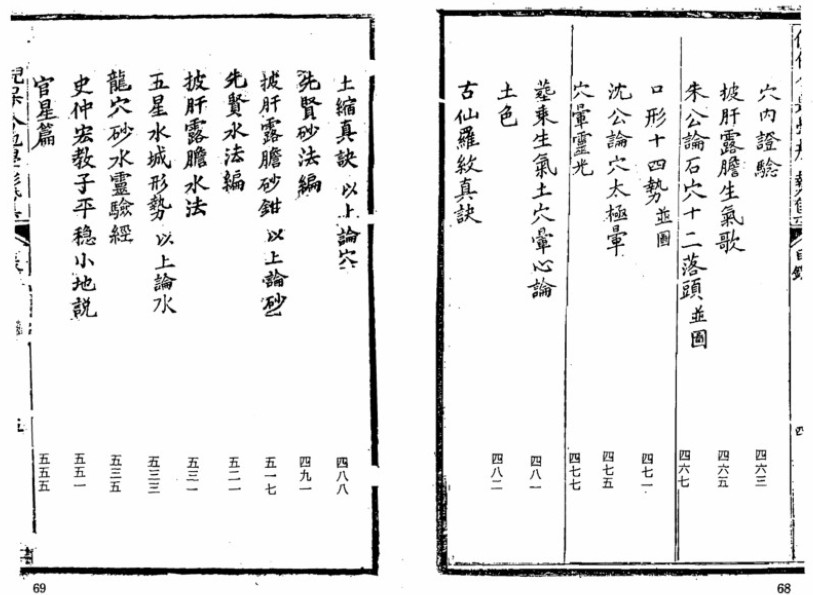 目錄
四
穴內證驗 四六三
披肝露膽生氣歌 四六五
朱公論石穴十二落頭並圖 四六七
口形十四勢並圖 四七一
沈公論穴太極暈 四七五
穴暈靈光 四七七
塟乘生氣土穴暈心論 四八一
土色 四八二
古仙羅紋真訣
68
土縮真訣 以上論穴 四八八
先賢砂法編 四九一
披肝露膽砂鉗 以上論砂 五一七
先賢水法編 五二一
披肝露膽水法 五三一
五星水城形勢 以上論水 五三三
龍穴砂水靈驗經 五三五
史仲宏教子平穩小地説 五五一
官星篇 五五五
69